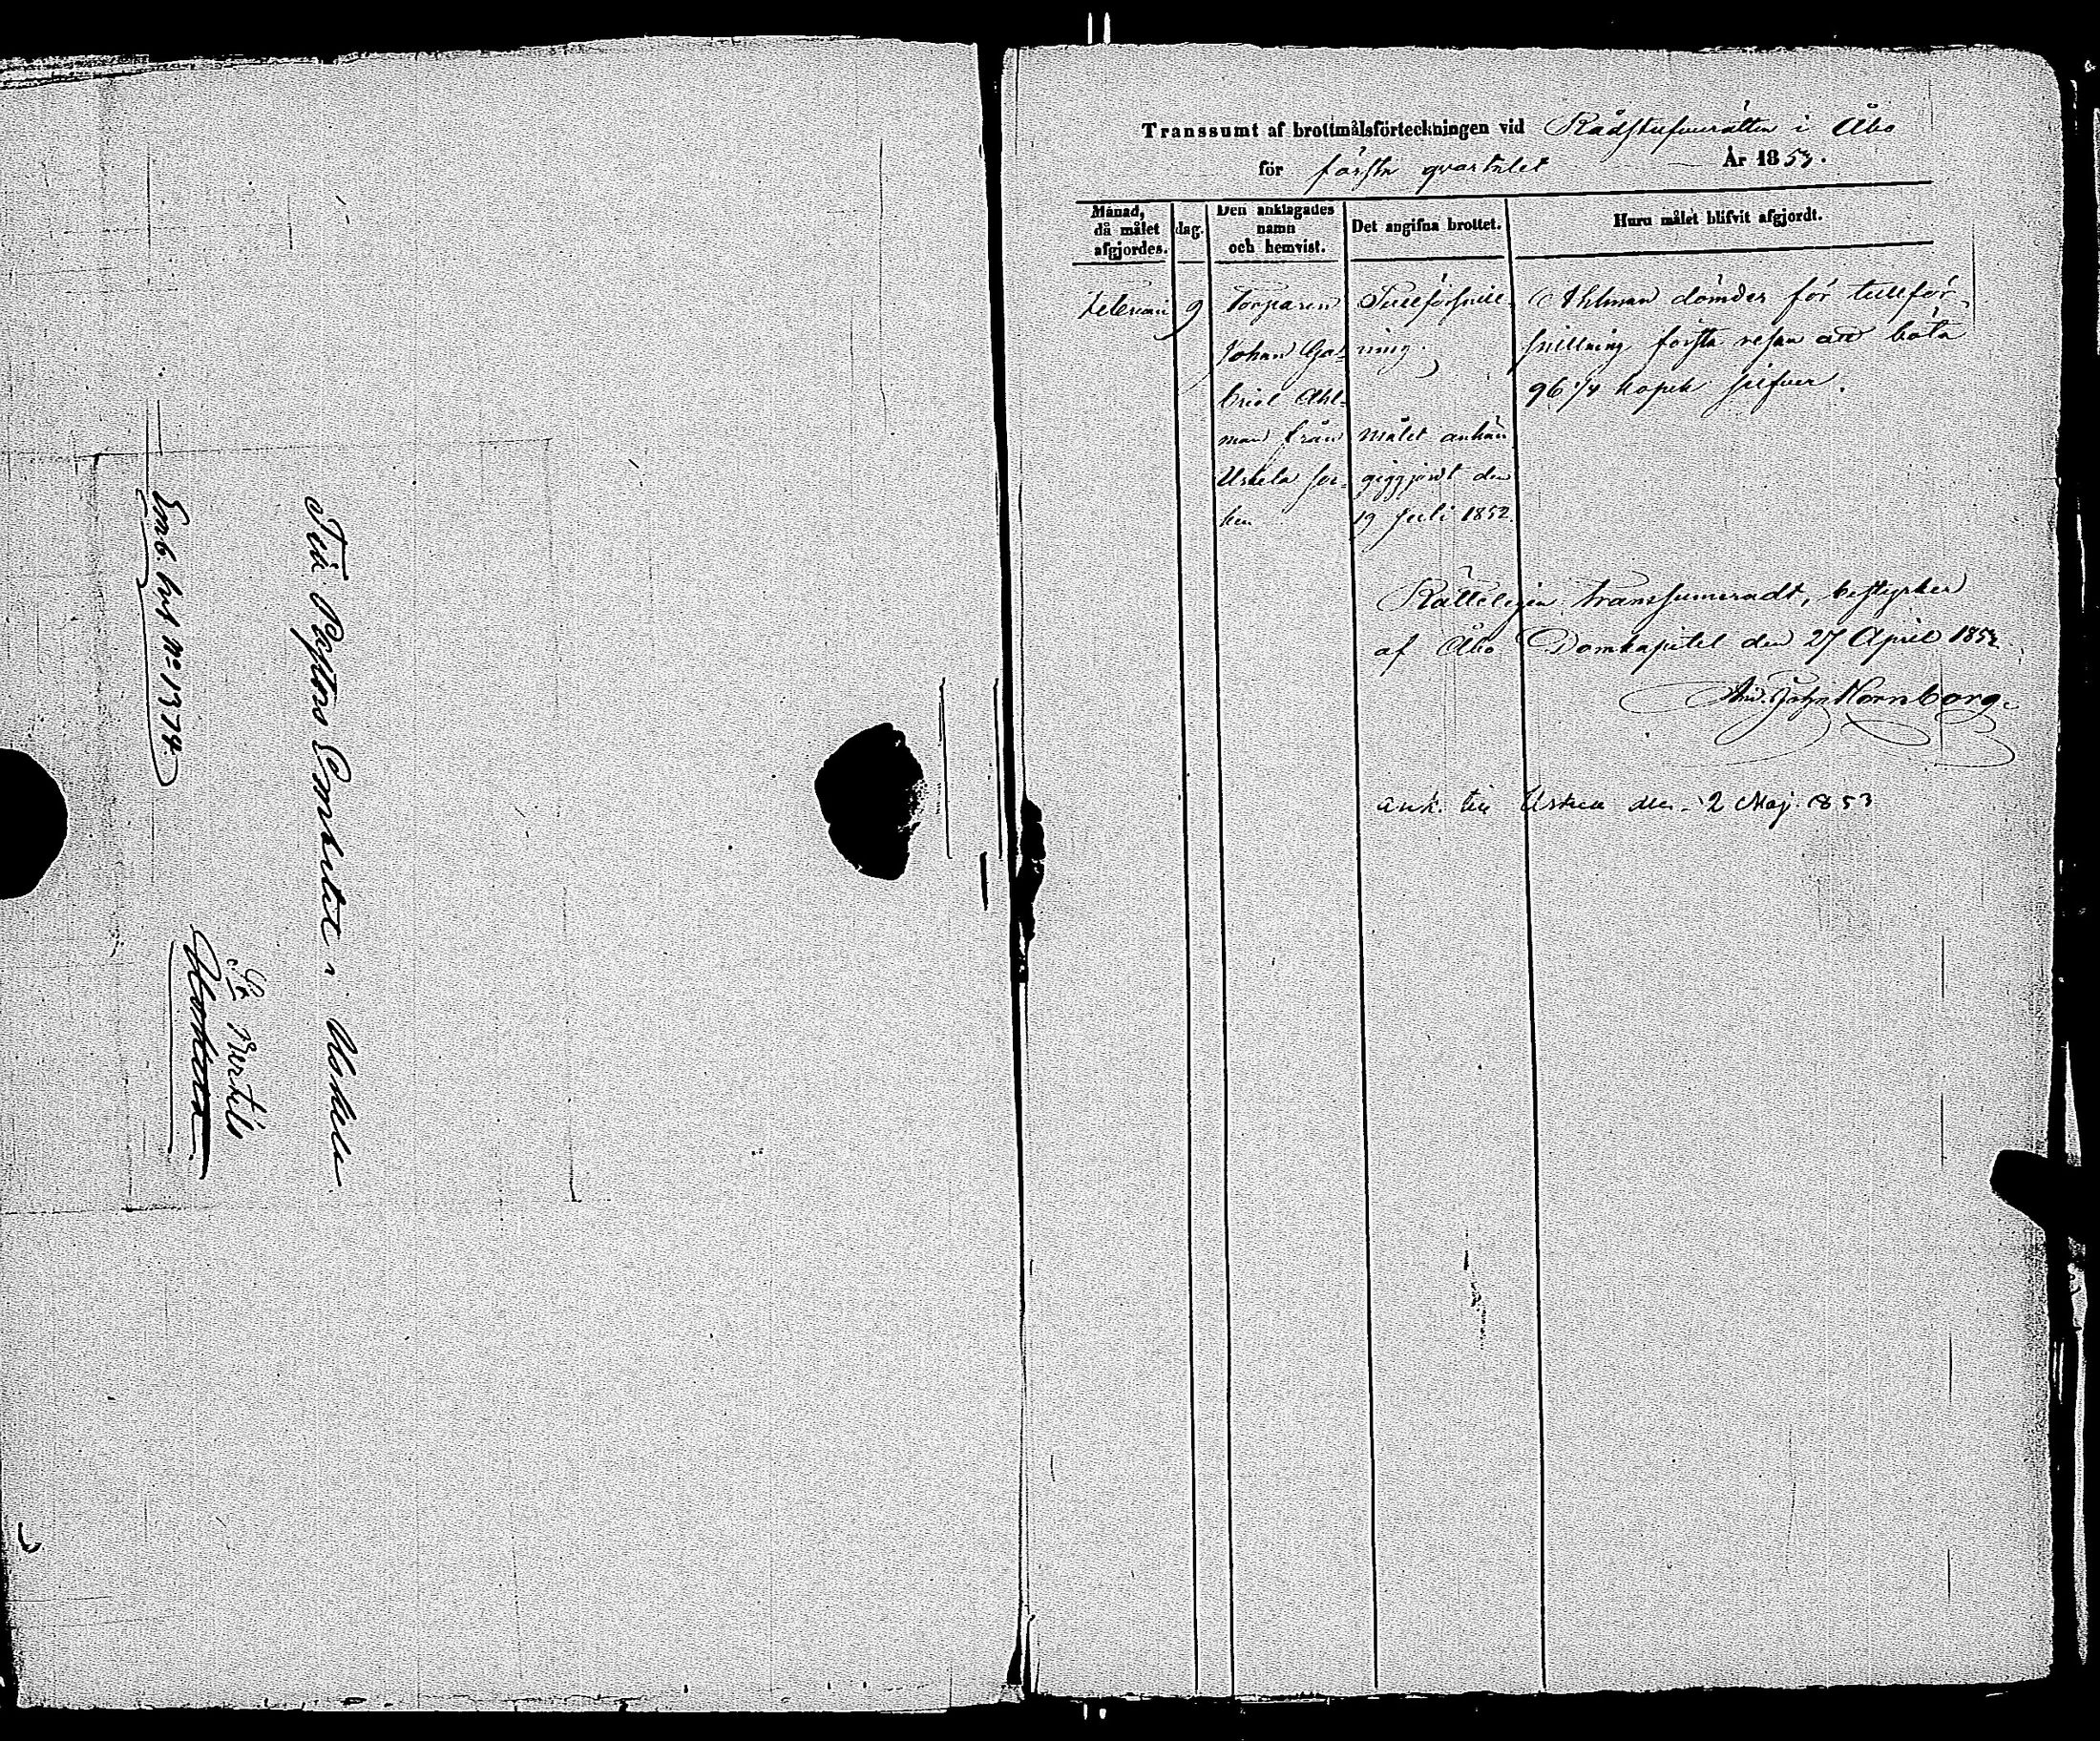 Till Pastors Embetet i Uskela
Emb. bref N:o 1374.
Bertils
Uskela
Transsumt af brottmålsförteckningen vid Rådstufvurätten i Åbo
för första qvartalet År 1853.
Månad, då målet afgjordes.
dag.
Den anklagades namn och hemvist.
Det angifna brottet.
Huru målet blifvit afgjordt.
Februari
9
Torparen
Johan Ga-
briel Ahl-
man från
Uskela soc-
ken
Tullförsnill-
ning.
målet anhän
giggjordt den
19 Juli 1852.
Ahlman dömdes för tullför-
snillning första resan att böta
96 1/4 kopek silfver.
Rätteligen transsumeradt, bestyrker
af Åbo Domkapitel den 27 April 1853.
And. John Hornborg.
ank. till Uskela den 2 Maj. 1853